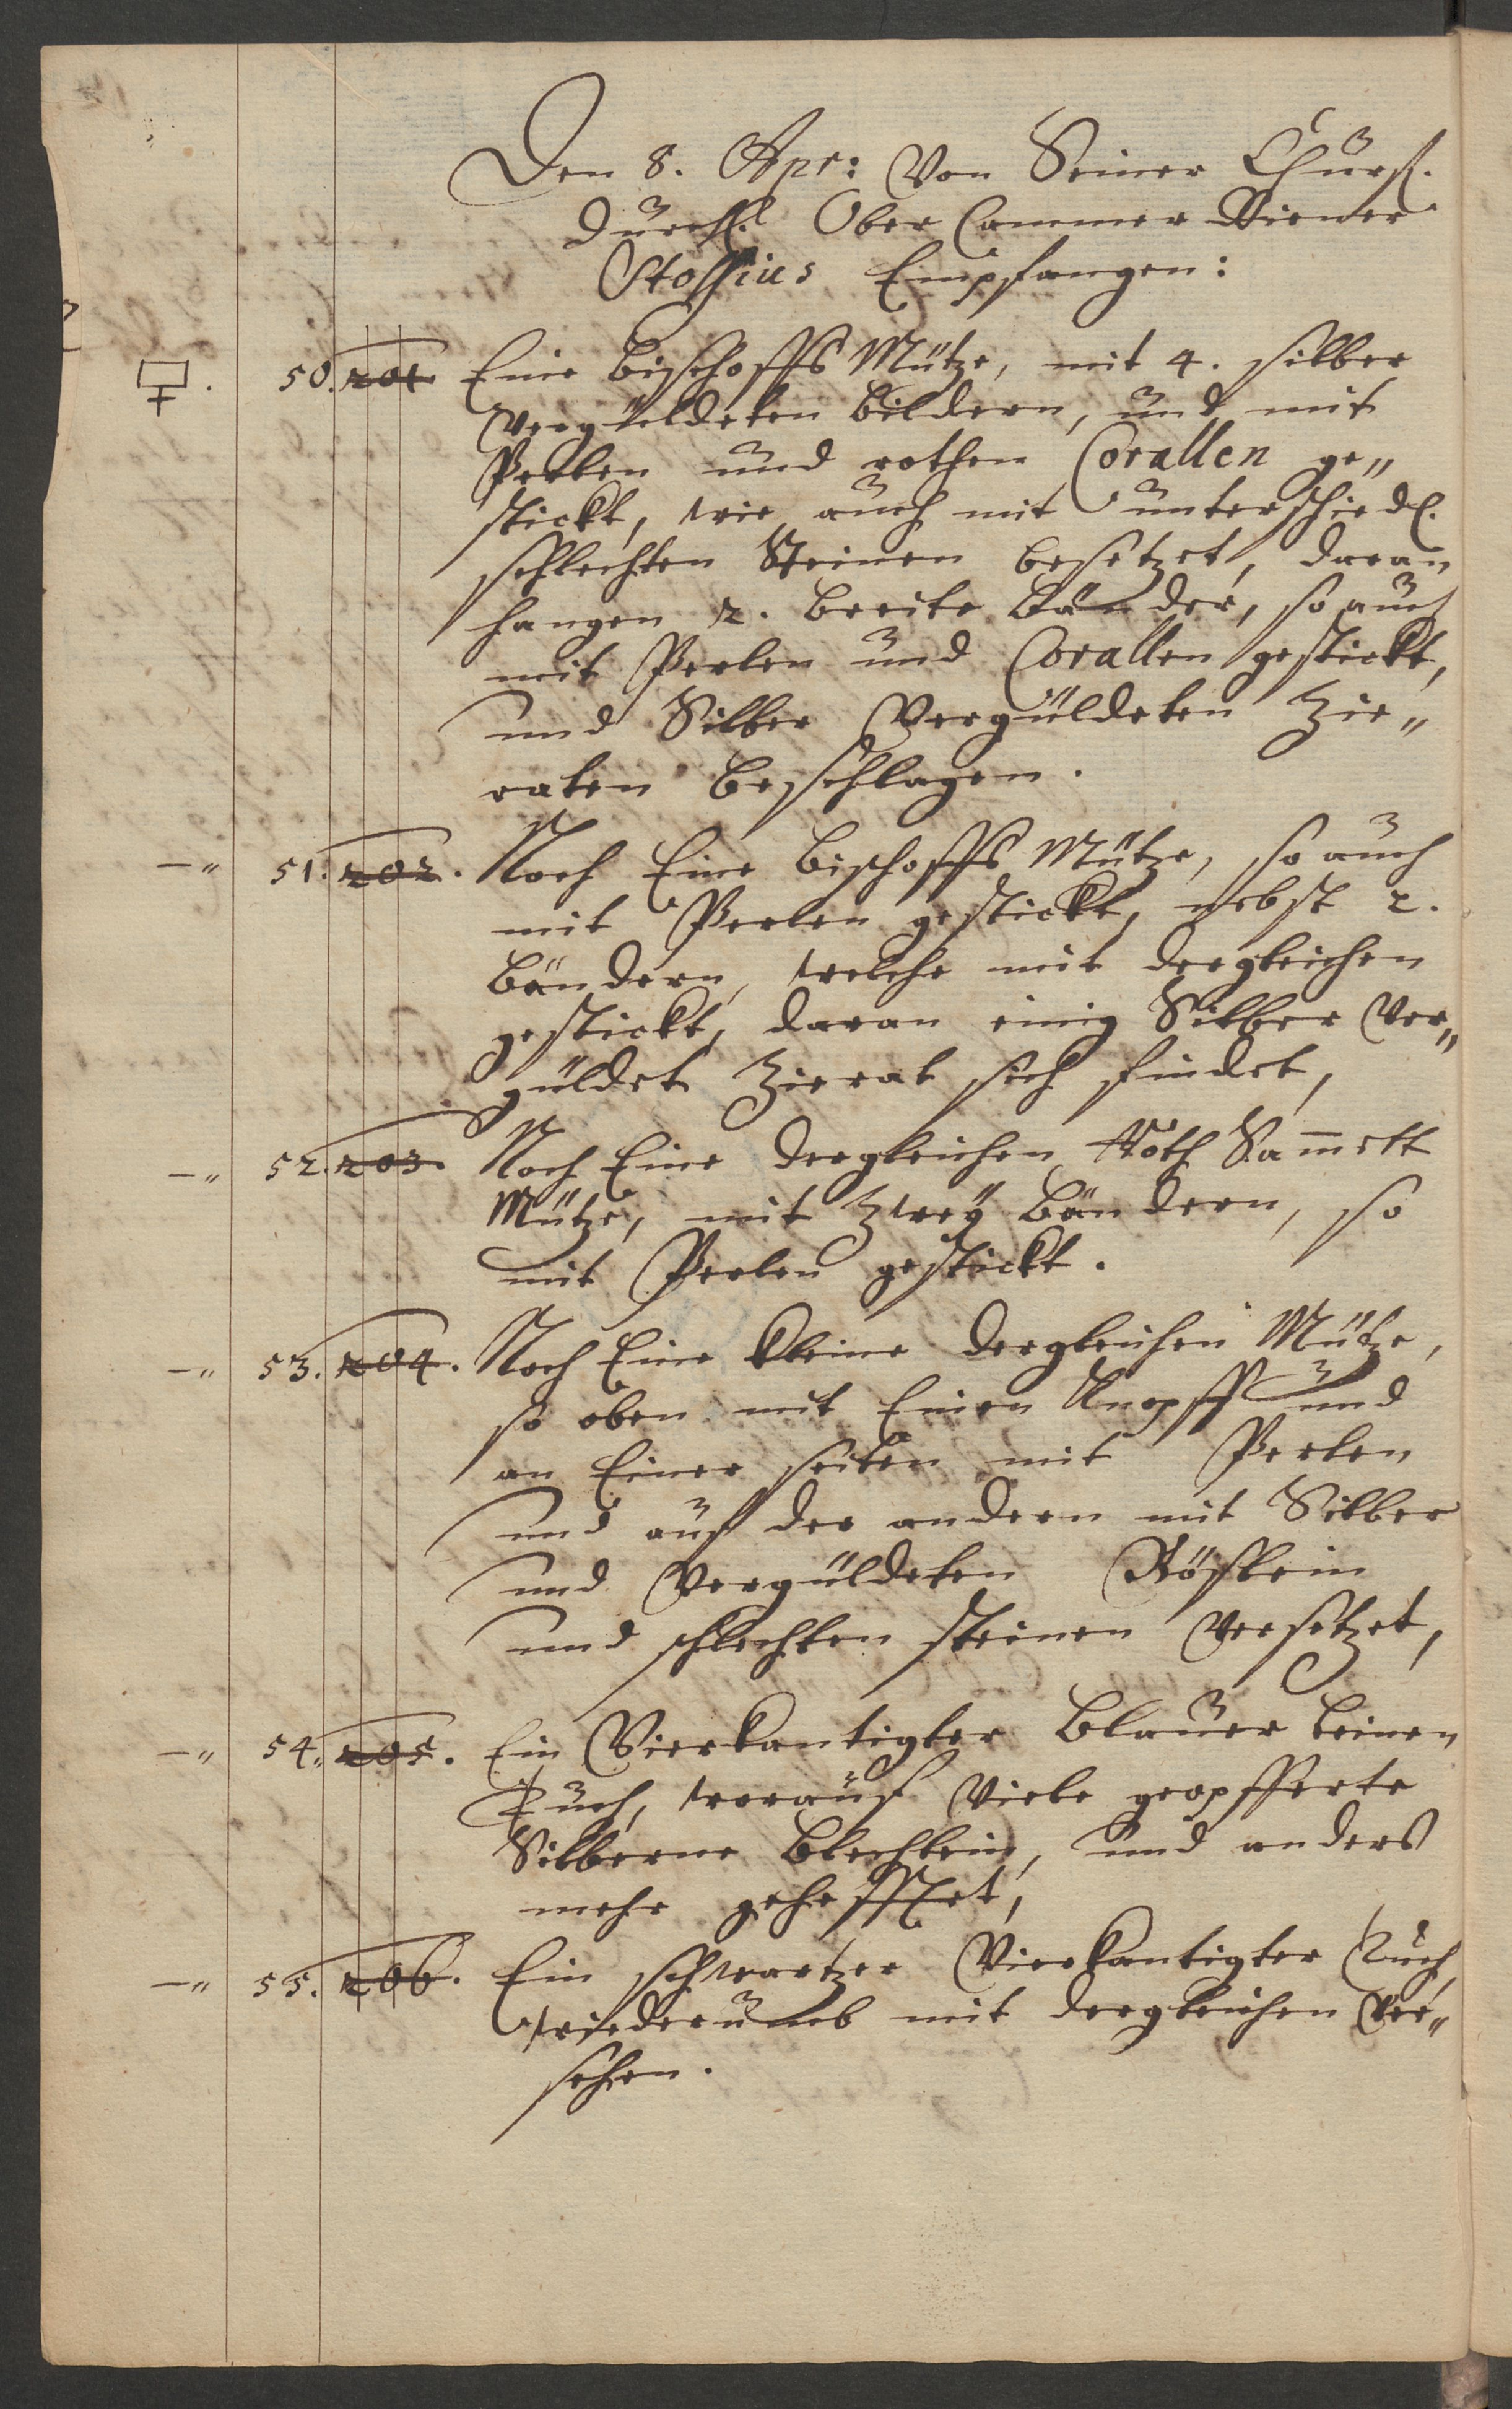 Den 8. Apr: Von Seiner Churf.
Durchl. Ober Cammer Diener
Stossius Empfangen:
50. 201. Eine Bischoffs Mütze, mit 4. silber
Vergüldeten Bildern, und mit
Perlen und rothen Corallen ge„
stickt, wie auch mit unterschiedl.
schlechten Steinen besetzet, daran
hangen 2. breite Bänder, so auch
mit Perlen und Corallen gestickt,
und Silber Vergüldeten Zie„
raten beschlagen.
–„ 51. 202. Noch Eine Bischoffs Mütze, so auch
mit Perlen gestickt, nebst 2.
Bändern, welche mit dergleichen
gestickt, daran einig Silber Ver„
güldet Zierat sich findet,
–„ 52. 203. Noch Eine dergleichen Roth Sam̄ett
Mütze, mit Zweÿ Bändern, so
mit Perlen gestickt.
–„ 53. 204. Noch Eine kleine dergleichen Mütze,
so oben mit Einen Knopff und
an Einer seiten mit Perlen
und auf der andern mit Silber
und Vergüldeten Rößlein
und schlechten steinen Versetzet,
–„ 54„ 205. Ein Vierkantigter Blauer leinen
Tuch, worauf Viele geopfferte
Silberne Blechlein, und anders
mehr gehefftet,
–„ 55. 206. Ein schwartzer Vierkantigter Tuch,
wiederumb mit dergleichen Ver„
sehen.